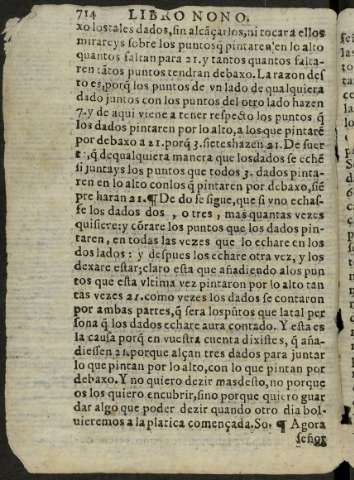 714 LIBRO NONO.
xo los tales dados, sin alcãçarlos, ni tocar a ellos
mirareys sobre los puntos q̃ pintaren en lo alto
quantos faltan para 21. y tantos quantos falta-
ren tãtos puntos tendran debaxo. La razon des
to es, porq̃ los puntos de vn lado de qualquiera
dado juntos con los puntos del otro lado hazen
7. y de aqui viene a tener respecto los puntos q̃
los dados pintaren por lo alto, a los que pintarẽ
por debaxo a 21. porq̃ 3. sietes hazen 21. De suer
te, q̃ de qualquiera manera que los dados se echẽ
si juntays los puntos que todos 3. dados pinta-
ren en lo alto con los q̃ pintaren por debaxo, siẽ
pre haran 21. ¶ De do se sigue, que si vno echas-
se los dados dos, o tres, mas quantas vezes
quisiere: y cõtare los puntos que los dados pin-
taren, en todas las vezes que lo echare en los
dos lados: y despues los echare otra vez, y los
dexare estar; claro esta que añadiendo a los pun
tos que esta vltima vez pintaron por lo alto tan
tas vezes 21. como vezes los dados se contaron
por ambas partes, q̃ sera los pũtos que la tal per
sona q̃ los dados echare aura contado. Y esta es
la causa porq̃ en vuestra cuenta dixistes, q̃ aña-
diessen 21. porque alçan tres dados para juntar
lo que pintan por lo alto, con lo que pintan por
debaxo. Y no quiero dezir mas desto, no porque
os los quiero encubrir, sino porque quiero guar
dar algo que poder dezir quando otro dia bol-
uieremos a la platica començada. So. ¶ Agora
señor